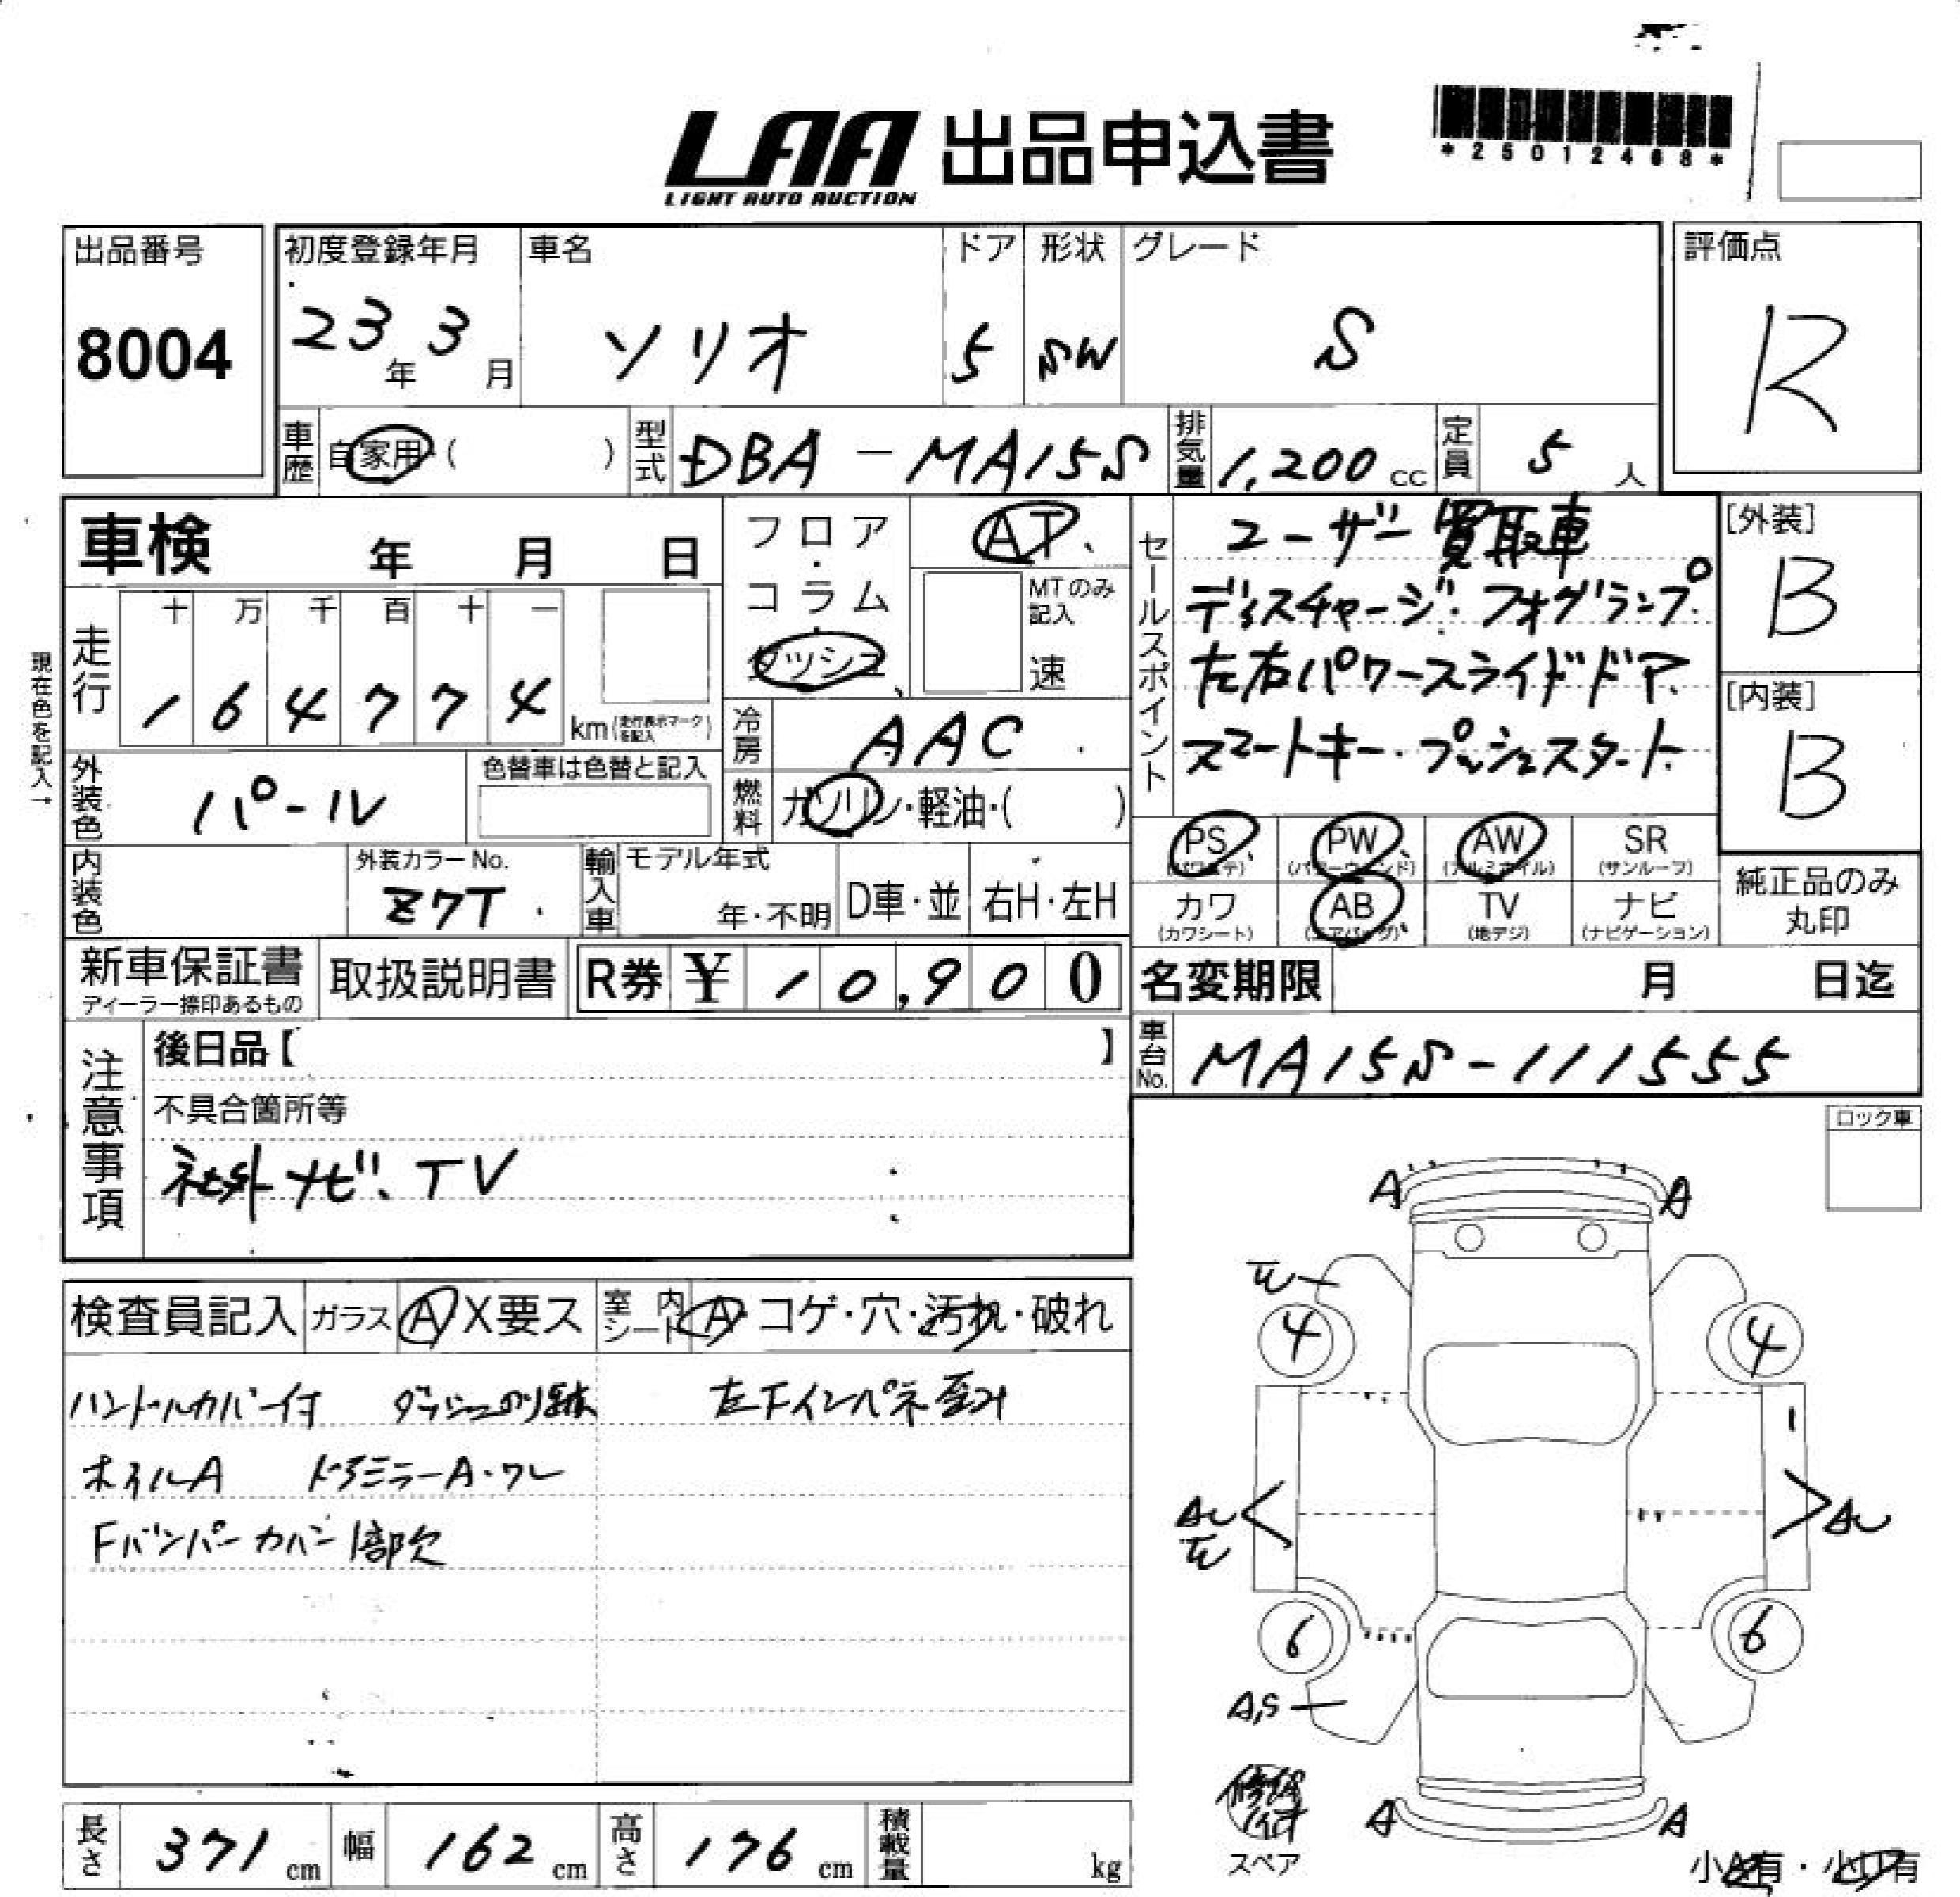 LAA 出品申込書
LIGHT AUTO AUCTION
*25012468*
出品番号
8004
初度登録年月
23年 3月
車名
ソリオ
ドア
5
形状
SW
グレード
S
評価点
R
車歴
自家用・( )
型式
DBA-MA15S
排気量
1,200 cc
定員
5 人
車検 年 月 日
フロア・コラム・ダッシュ
AT
MTのみ記入
速
セールスポイント
ユーザー買取車
ディスチャージ・フォグランプ
左右パワースライドドア
スマートキー・プッシュスタート
[外装]
B
[内装]
B
現在色を記入→
走行
十 万 千 百 十 一
1 6 4 7 7 4
km (走行表示マークを記入)
冷房
AAC
外装色
パール
色替車は色替と記入
燃料
ガソリン・軽油・( )
PS PW AW SR
(パワステ) (パワーウィンド) (アルミホイル) (サンルーフ)
カワ AB TV ナビ
(カワシート) (エアバッグ) (地デジ) (ナビゲーション)
純正品のみ
丸印
内装色
外装カラーNo.
Z7T
輸入車
モデル年式
年・不明
D車・並
右H・左H
新車保証書
ディーラー捺印あるもの
取扱説明書
R券 ¥ 10,900
名変期限 月 日迄
車台No.
MA15S-111555
注意事項
後日品【 】
不具合箇所等
社外ナビ、TV
ロック車
検査員記入
ガラス
A X要ス
室内シート
A・コゲ・穴・汚れ・破れ
ハンドルカバー付 ダッシュのり跡 左Fインパネ歪み
ホイルA ドアミラーA・ワレ
Fバンパーカバー1部欠
A A
4 4
AU AU
6 6
A,S
A A
スペア
小A有・小U有
長さ 371 cm
幅 162 cm
高さ 176 cm
積載量 kg